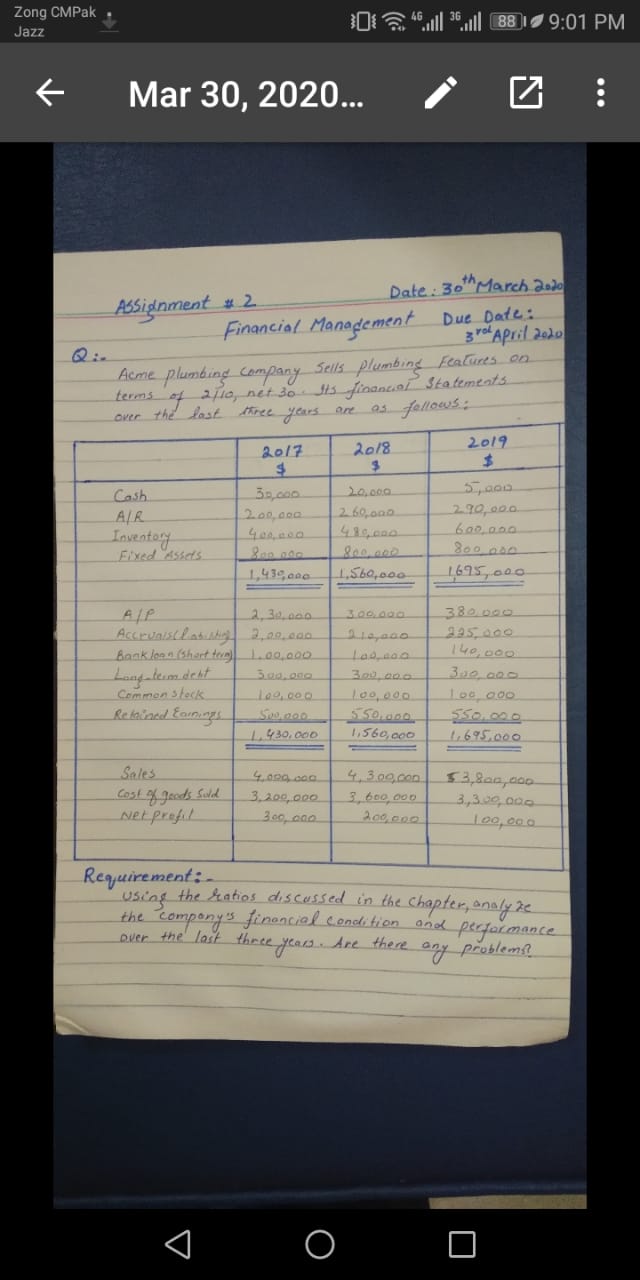 Zong CMPak
Jazz
4G 3G 88 9:01 PM
Mar 30, 2020...
Assignment # 2 Date: 30th March 2020
Financial Management Due Date:
3rd April 2020
Q:-
Acme plumbing company Sells plumbing Features on
terms of 2/10, net 30. Its financial Statements
over the last three years are as follows:
2017 2018 2019
$ $ $
Cash 30,000 20,000 5,000
A/R 200,000 260,000 290,000
Inventory 400,000 480,000 600,000
Fixed Assets 800,000 800,000 800,000
1,430,000 1,560,000 1,695,000
A/P 2,30,000 300,000 380,000
2,00,000 210,000 225,000
Bank loan (short term) 1,00,000 100,000 140,000
Long-term debt 300,000 300,000 300,000
Common stock 100,000 100,000 100,000
Retained Earnings 500,000 550,000 550,000
1,430,000 1,560,000 1,695,000
Sales 4,000,000 4,300,000 $3,800,000
Cost of goods Sold 3,200,000 3,600,000 3,300,000
Net profit 300,000 200,000 100,000
Requirement:-
Using the Ratios discussed in the chapter, analyze
the company's financial condition and performance
over the last three years. Are there any problems?